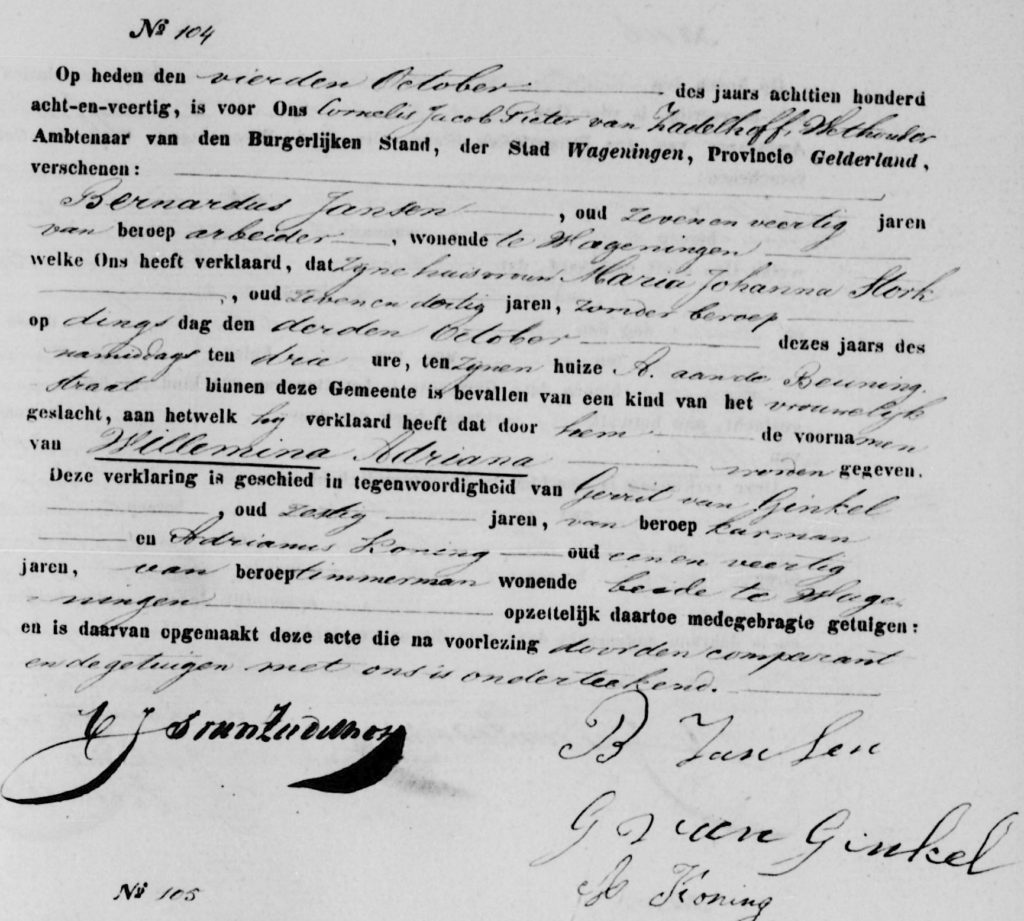 No 104
Op heden den vierden October des jaars achttien honderd
acht-en-veertig, is voor Ons Cornelis Jacob Pieter van Zadelhoff, Wethouder
Ambtenaar van den Burgerlijken Stand, der Stad Wageningen, Provincie Gelderland,
verschenen:
Bernardus Jansen, oud zevenen veertig jaren
van beroep arbeider, wonende te Wageningen
welke Ons heeft verklaard, dat zyne huisvrouw Maria Johanna Stork
, oud zevenen dertig jaren, zonder beroep
op dings dag den derden October dezes jaars des
namiddags ten drie ure, ten zynen huize A. aan de Beuning
straat binnen deze Gemeente is bevallen van een kind van het vrouwelyk
geslacht, aan hetwelk hy verklaard heeft dat door hem de voornamen
van Willemina Adriana worden gegeven.
Deze verklaring is geschied in tegenwoordigheid van Gerrit van Ginkel
, oud zestig jaren, van beroep karman
en Adrianus Koning oud eenen veertig
jaren, van beroep timmerman wonende beide te Wage-
ningen opzettelijk daartoe medegebragte getuigen:
en is daarvan opgemaakt deze acte die na voorlezing door den comparant
en de getuigen met ons is onderteekend.
C J P van Zadelhoff
B Jansen
G van Ginkel
A Koning
No 105